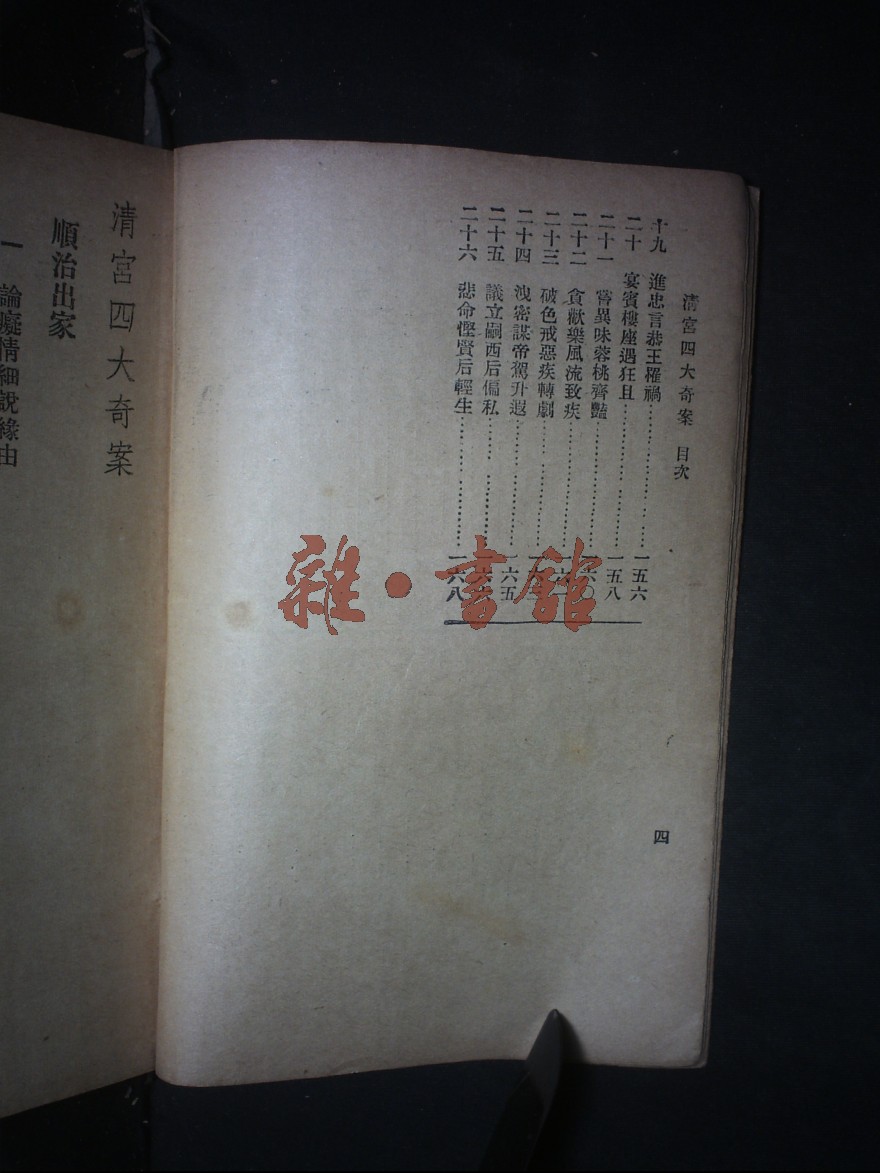 清宮四大奇案　目次
十九　進忠言恭王罹禍……一五六
二十　宴賓樓座遇狂且……一五八
二十一　嘗異味蓉桃齊豔……一六〇
二十二　貪歡樂風流致疾……一六
二十三　破色戒惡疾轉劇……一六
二十四　洩密謀帝駕升遐……一六五
二十五　議立嗣西后偏私……一六六
二十六　悲命慳賢后輕生……一六八
四
清宮四大奇案
順治出家
一　論癡情細說緣由
雜·書館